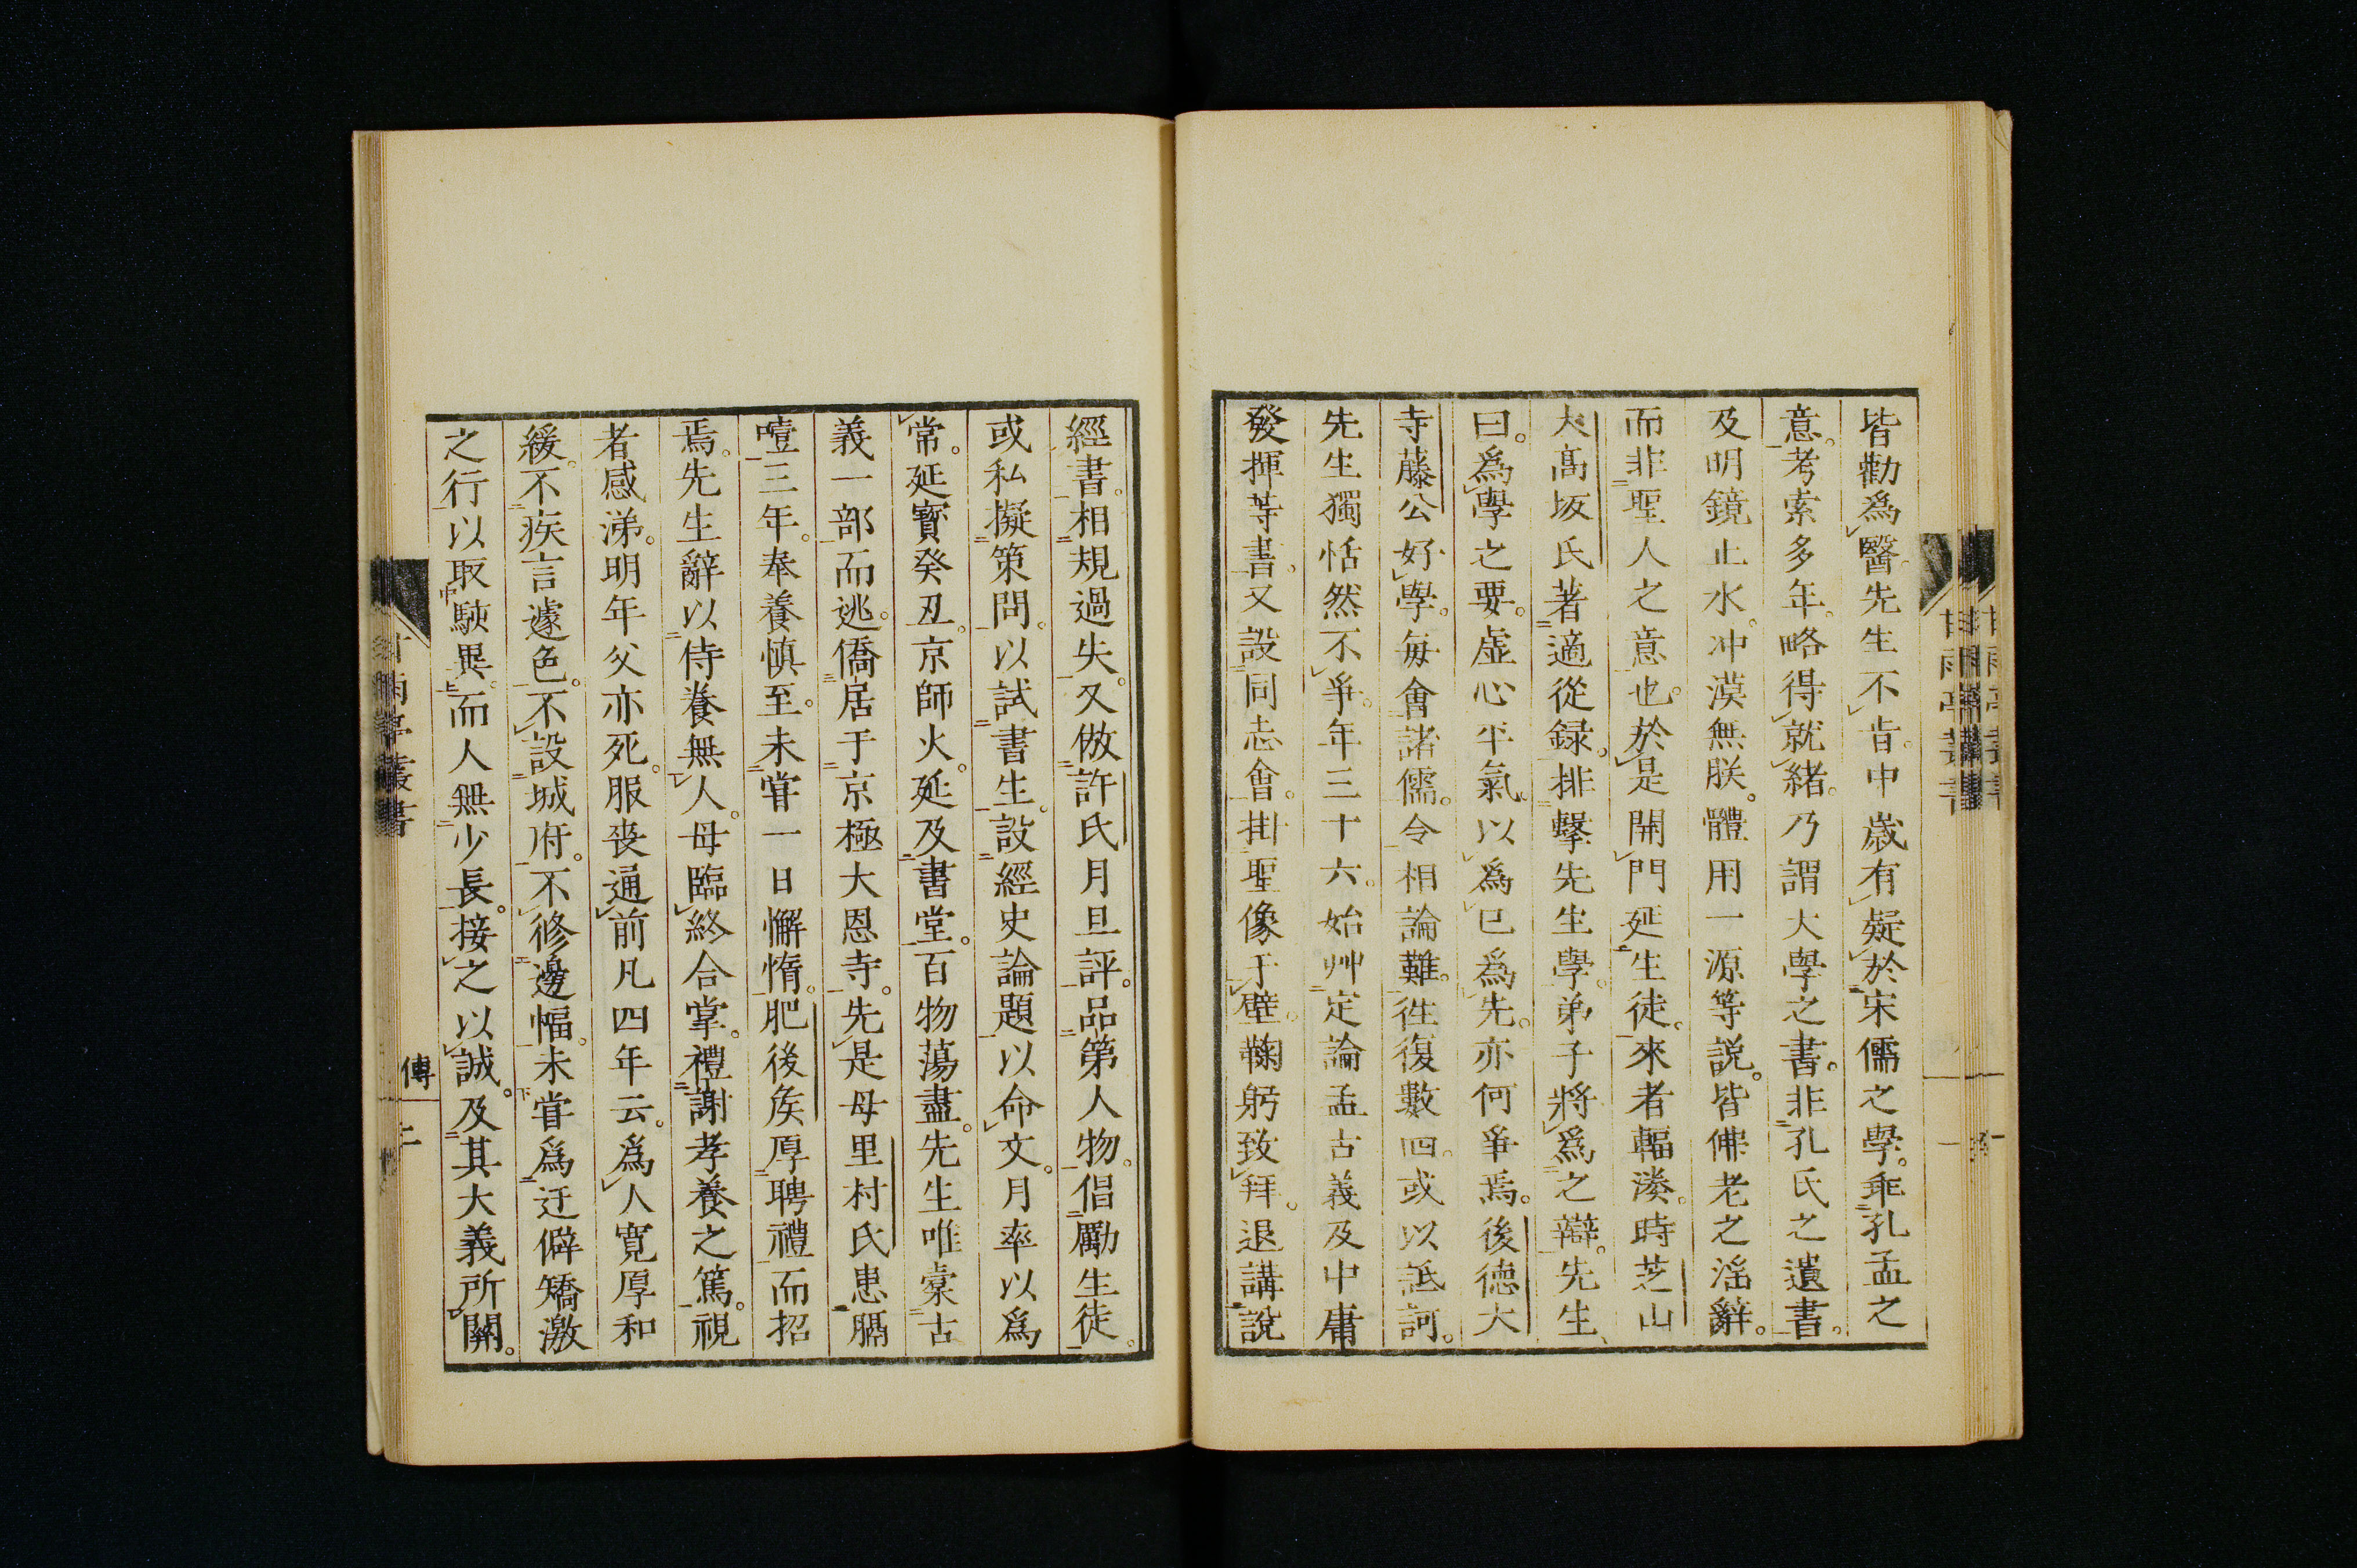 皆勸爲醫。先生不肯。中歳有疑於宋儒之學。乖孔孟之
意。考索多年。略得就緒。乃謂大學之書。非孔氏之遺書。
及明鏡止水。冲漠無朕。體用一源等説。皆佛老之滛辭。
而非聖人之意也。於是開門延生徒。來者輻湊。時芝山
大髙坂氏著適從録。排擊先生學。弟子將爲之辯。先生
曰。爲學之要。虛心平氣。以爲已爲先。亦何爭焉。後德大
寺藤公好學。每會諸儒。令相論難。徃復數四。或以詆訶。
先生獨恬然不爭。年三十六。始艸定論孟古義及中庸
發揮等書。又設同志會。掛聖像于壁。鞠躬致拜。退講說
經書。相規過失。又倣許氏月旦評。品第人物。倡勵生徒。
或私擬策問。以試書生。設經史論題以命文。月率以爲
常。延寶癸丑。京師火。延及書堂。百物蕩盡。先生唯橐古
義一部而逃。僑居于京極大恩寺。先是母里村氏患膈
噎三年。奉養愼至。未甞一日懈惰。肥後矦厚聘禮而招
焉。先生辭以侍養無人。母臨終合掌。禮謝孝養之篤。視
者感涕。明年父亦死。服喪通前凡四年云。爲人寛厚和
緩。不疾言遽色。不設城府。不修邊幅。未甞爲迂僻矯激
之行以取駭異。而人無少長。接之以誠。及其大義所關。
甘雨亭叢書
傳
二